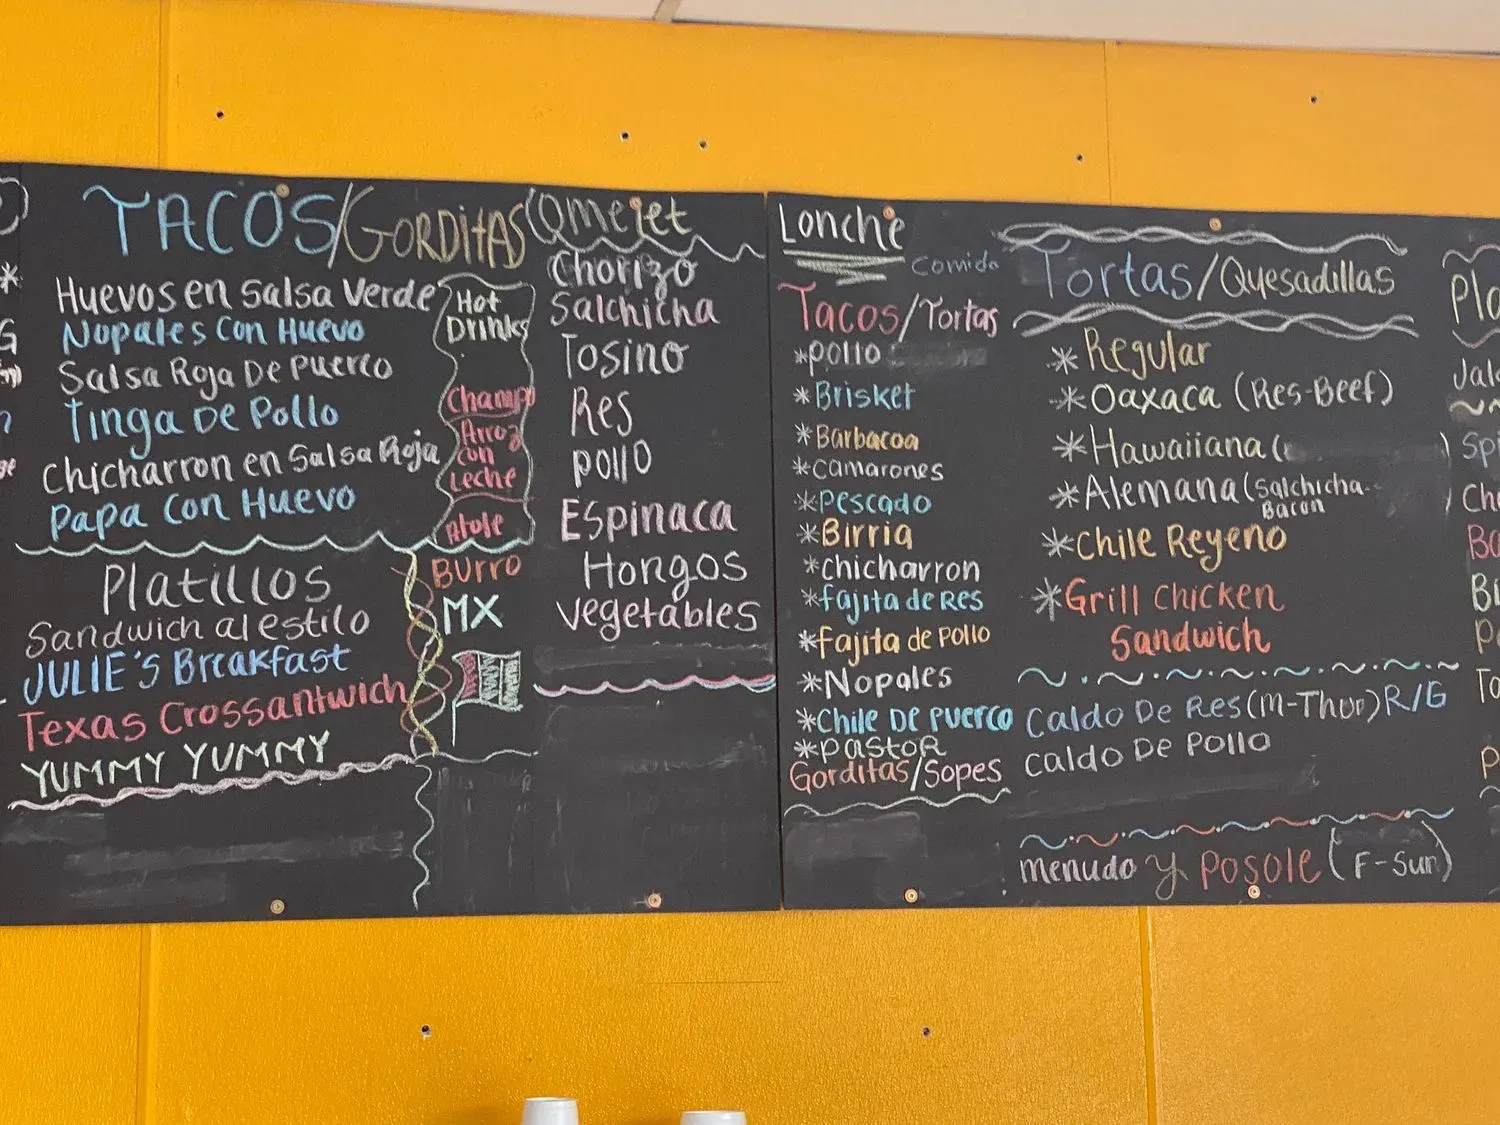 TACOS/GORDITAS
Huevos en Salsa Verde
Nopales Con Huevo
Salsa Roja De Puerco
Tinga De Pollo
Chicharron en Salsa Roja
Papa Con Huevo
Hot
Drinks
Champ
Arroz
con
Leche
Atole
Omelet
Chorizo
Salchicha
Tosino
Res
Pollo
Espinaca
Hongos
Vegetables
Platillos
Sandwich al estilo
JULIE'S Breakfast
Texas Crossantwich
YUMMY YUMMY
BURRO
MX
Lonche
Comida
Tacos/Tortas
*Pollo
*Brisket
*Barbacoa
*Camarones
*Pescado
*Birria
*Chicharron
*fajita de Res
*fajita de Pollo
*Nopales
*Chile De Puerco
*Pastor
Gorditas/Sopes
Tortas/Quesadillas
*Regular
*Oaxaca (Res-Beef)
*Hawaiiana (
*Alemana (Salchicha-
Bacon
*Chile Reyeno
*Grill Chicken
Sandwich
Caldo De Res (M-Thur) R/G
Caldo De Pollo
Menudo Y Posole (F-Sun)